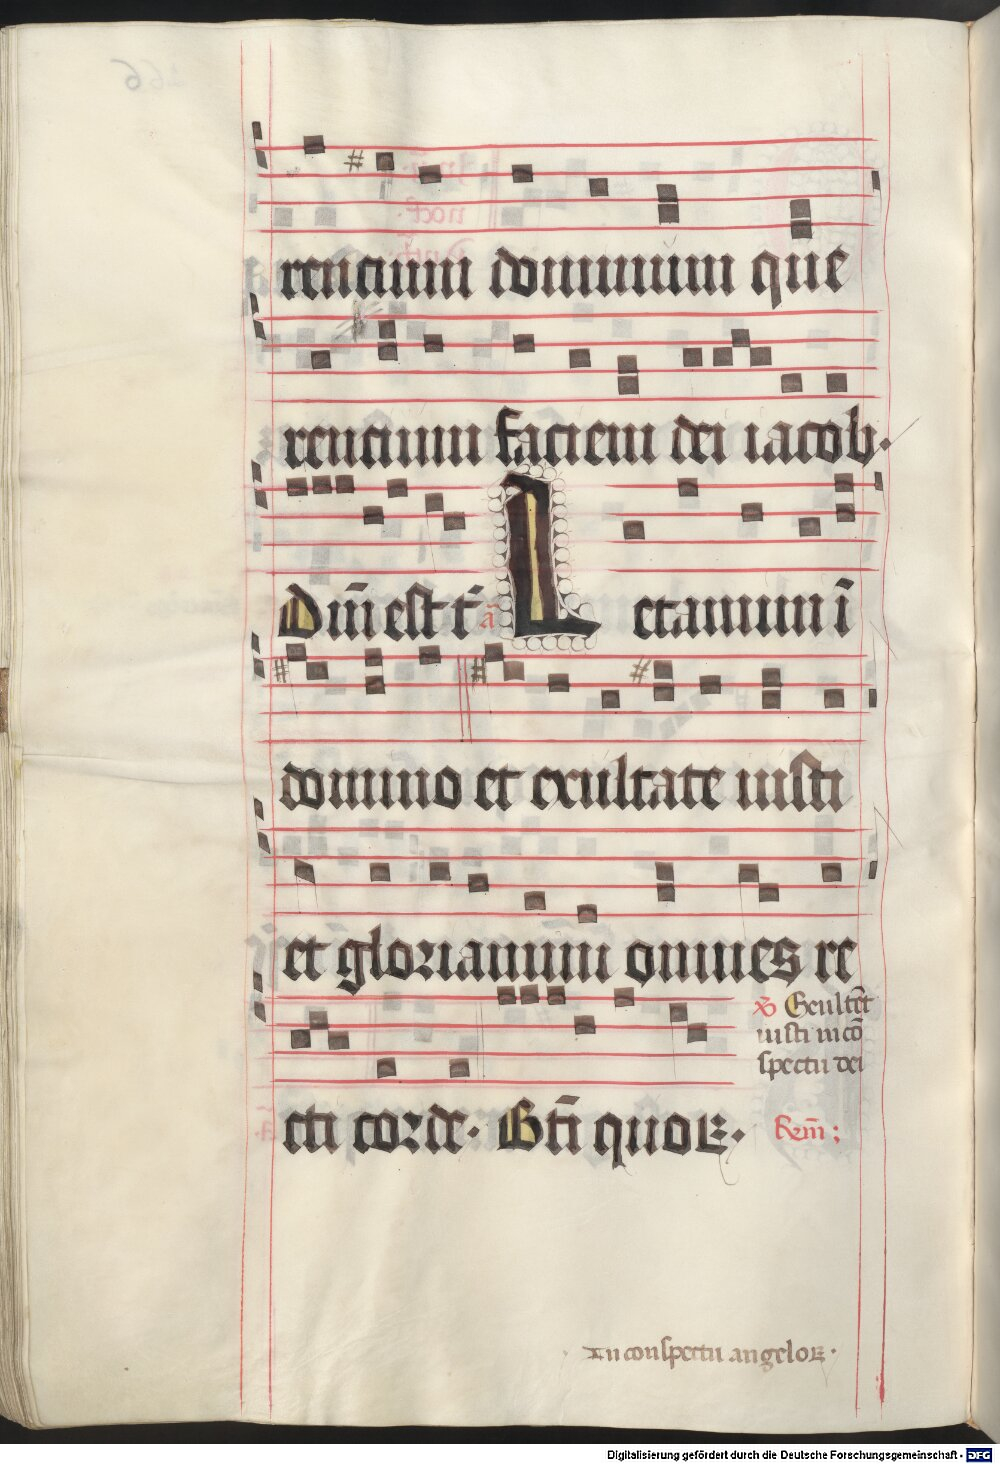 rencium dominum que
rencium faciem dei iacob.
Dñi est t̃ra ã Letamini ĩ
domino et exultate iusti
et gloriamini omnes re
cti corde. Bt̃i quoꝝ.
℣ Exultẽt
iusti in cõ
spectu dei
Rm̃:
In conspectu angeloꝝ.
Digitalisierung gefördert durch die Deutsche Forschungsgemeinschaft - DFG